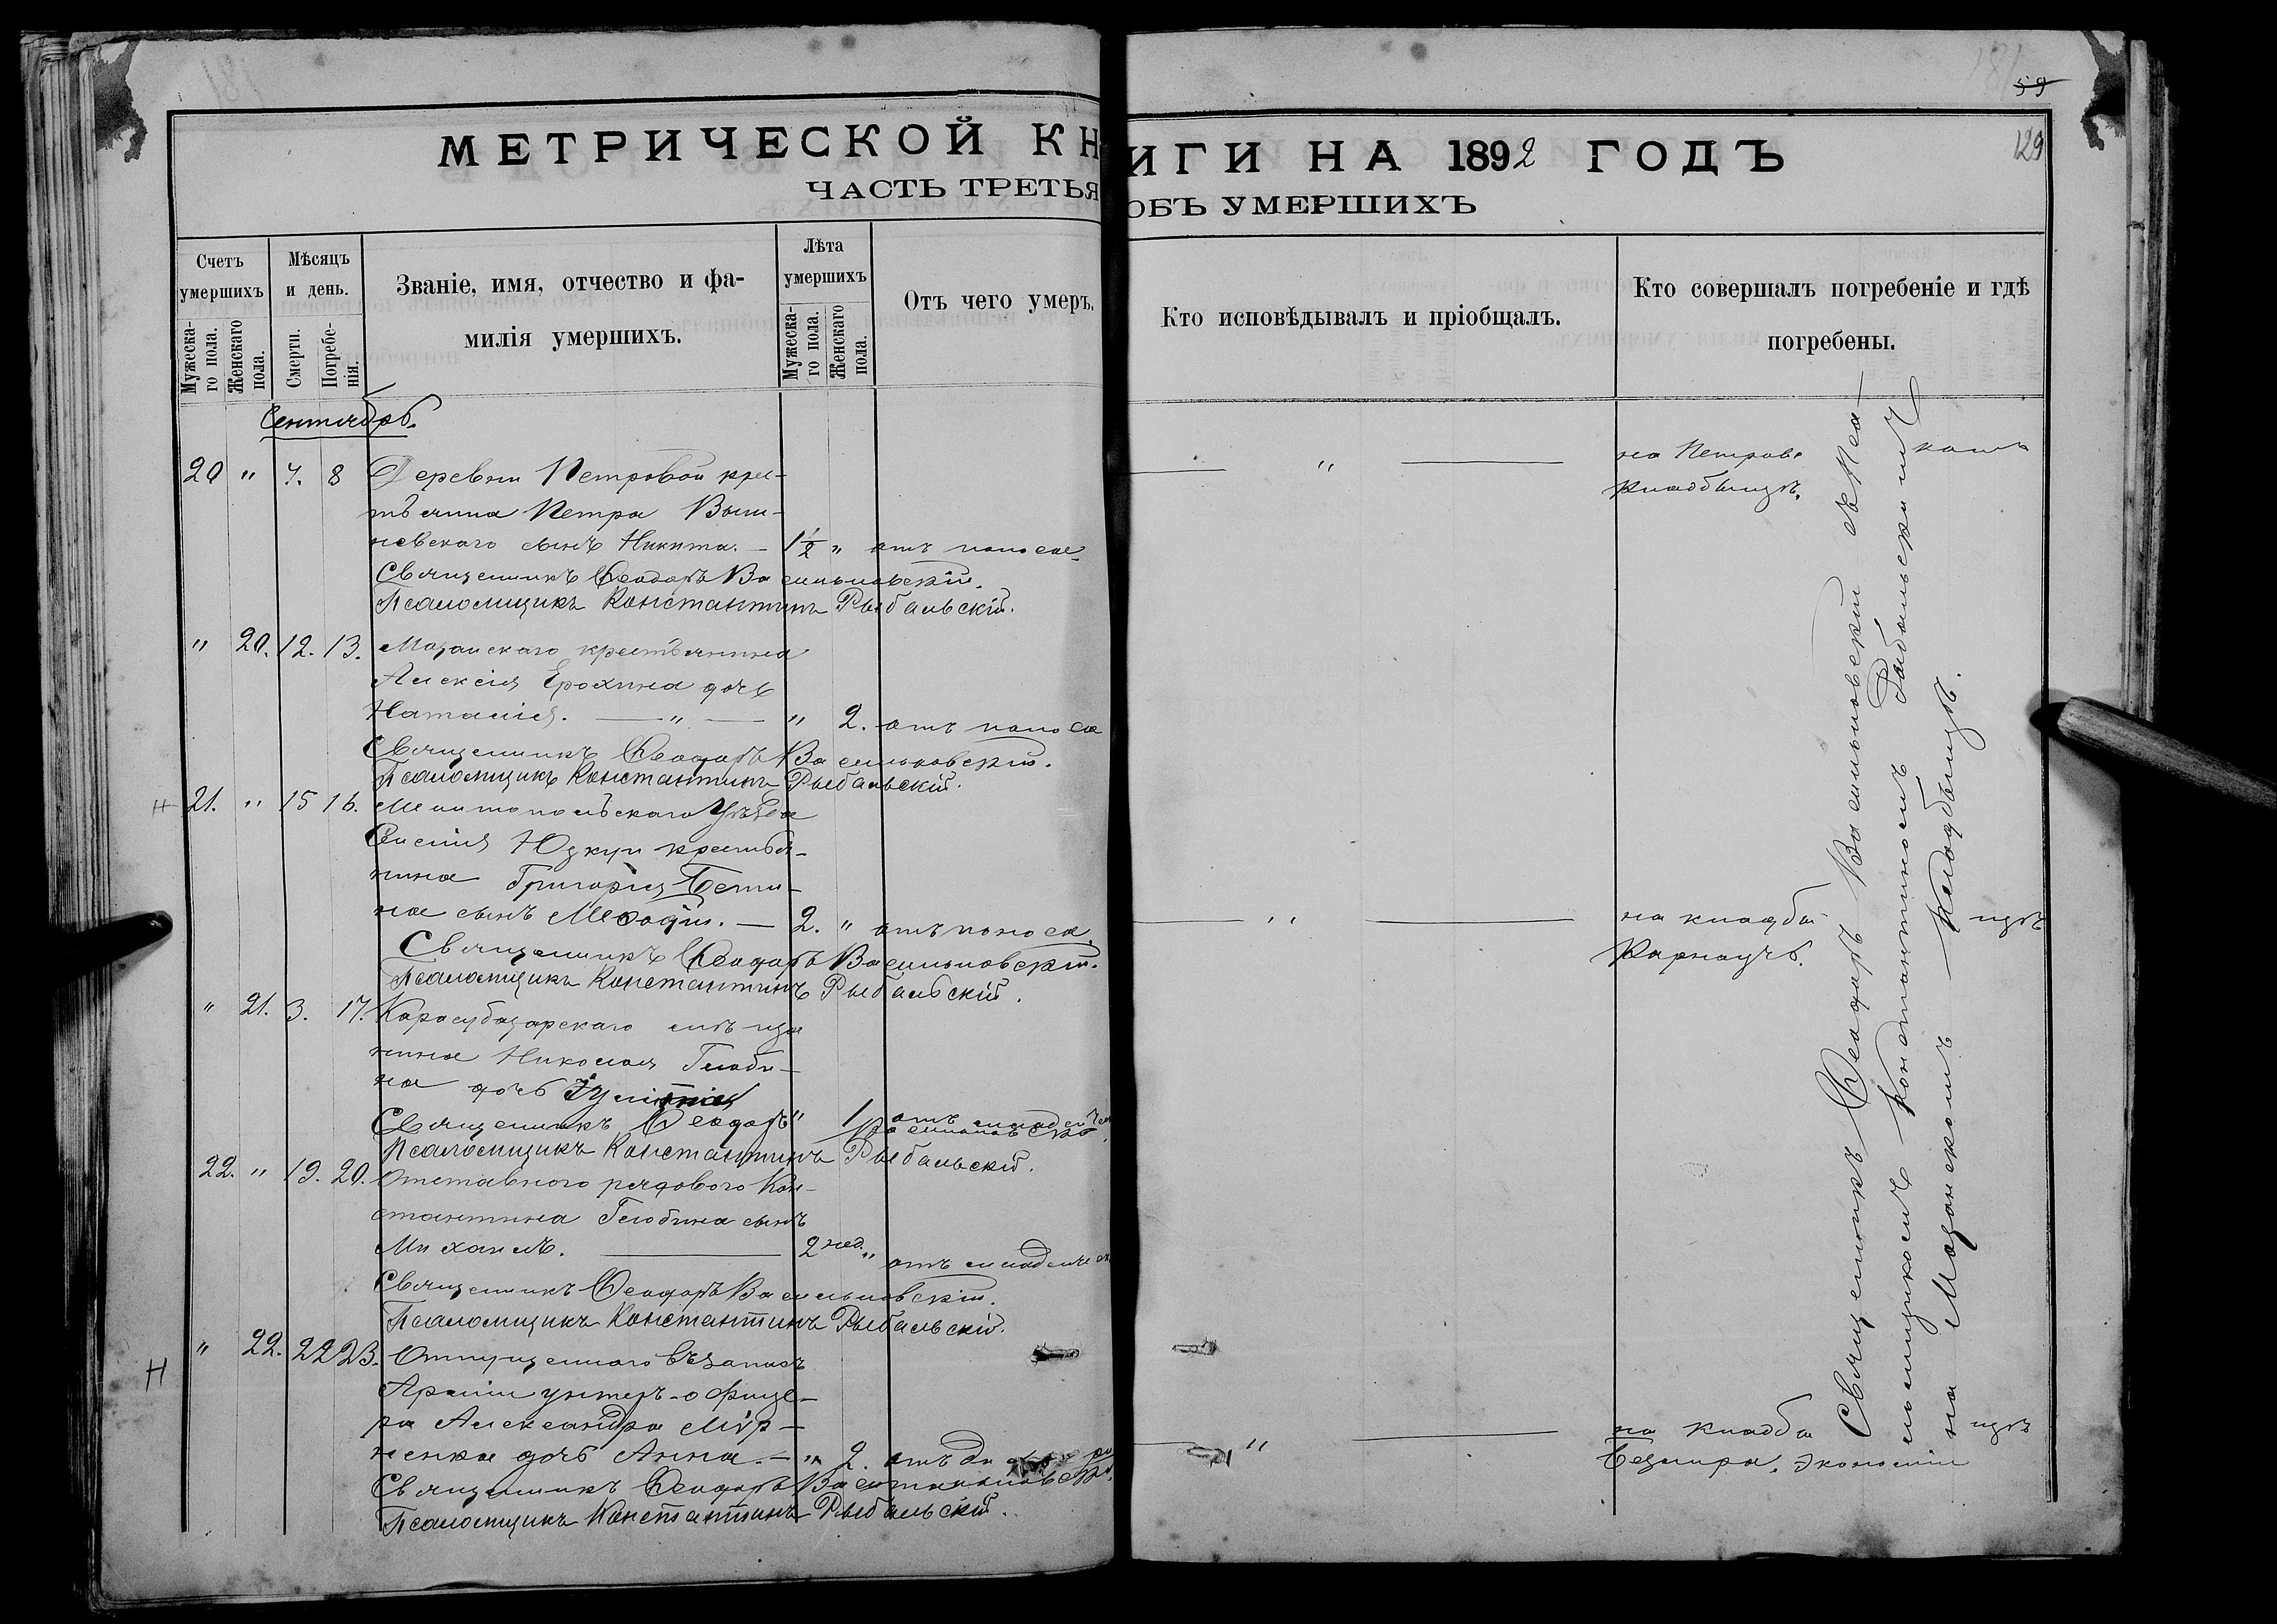 59
129
МЕТРИЧЕСКОЙ КНИГИ НА 1892 ГОДЪ
ЧАСТЬ ТРЕТЬЯ ОБЪ УМЕРШИХЪ
Счетъ умершихъ
Мѣсяцъ и день.
Званіе, имя, отчество и фа-
милія умершихъ.
Лѣта умершихъ
Отъ чего умеръ.
Кто исповѣдывалъ и пріобщалъ.
Кто совершалъ погребеніе и гдѣ
погребены.
Мужеска-го пола.
Женскаго пола.
Смерти.
Погребе-нія.
Мужеска-го пола.
Женскаго пола.
Сентябрь.
20 " 7. 8 Деревни Петровой кре- на Петров.
стьянина Петра Выш- кладбищѣ.
невскаго сынъ Никита. — 1½ " отъ поноса.
Священникъ Ѳеодоръ Васильковскій.
Псаломщикъ Константинъ Рыбальскій.
" 20. 12. 13. Мазанскаго крестьянина
Алексія Ерохина дочь
Наталія. — " — " 2. отъ поноса
Священникъ Ѳеодоръ Васильковскій.
Псаломщикъ Константинъ Рыбальскій.
Н 21. " 15 16. Мелитопольскаго уѣзда
крестья-
нина Григорія
на сынъ Меѳодій. — 2. " отъ поноса. " на кладби щѣ
Карнауч.
Священникъ Ѳеодоръ Васильковскій.
Псаломщикъ Константинъ Рыбальскій.
" 21. 3. 17. Карасубазарскаго мѣща
нина Николая Глоби-
на дочь
" 1 отъ младенч
Священникъ Ѳеодоръ Васильковскій.
Псаломщикъ Константинъ Рыбальскій.
22. " 19. 20. Отставного рядового Кон-
стантина Глобина сынъ
Михаилъ. — 2 нед. " отъ младенче
Священникъ Ѳеодоръ Васильковскій.
Псаломщикъ Константинъ Рыбальскій.
Н " 22. 22 23. Отпущеннаго въ запасъ
Арміи унтеръ-офице-
ра Александра Мір-
ненка дочь Анна. — " 2. отъ " на кладби щѣ
экономіи
Священникъ Ѳеодоръ Васильковскій.
Псаломщикъ Константинъ Рыбальскій.
Священникъ Ѳеодоръ Васильковскій съ Пса-
ломщикомъ Константиномъ Рыбальскимъ
на Мазанскомъ кладбищѣ.